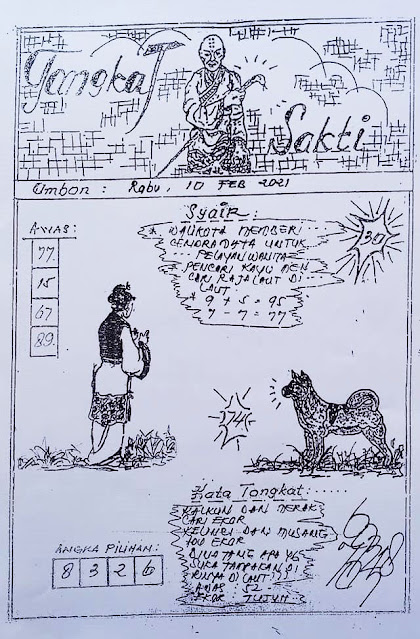 Tongkat
Sakti
Ombon : Rabu, 10 FEB 2021
AWAS:
77
15
67
89
Syair:
* WALIKOTA MEMBERI
CENDRAMATA UNTUK
PELAYAN WANITA
* PENCARI KAYU MEN
CARI RAJA LAUT DI
LAUT
* 9 + 5 = 95
7 - 7 = 77
30
374
Kata Tongkat:
KALKUN DAN MERAK
CARI EKOR
KELINCI DAN MUSANG
EKOR
APA YG
SUKA
DI LAUT???
AWAS : 52
EKOR TUJUH
ANGKA PILIHAN:
8 3 2 6